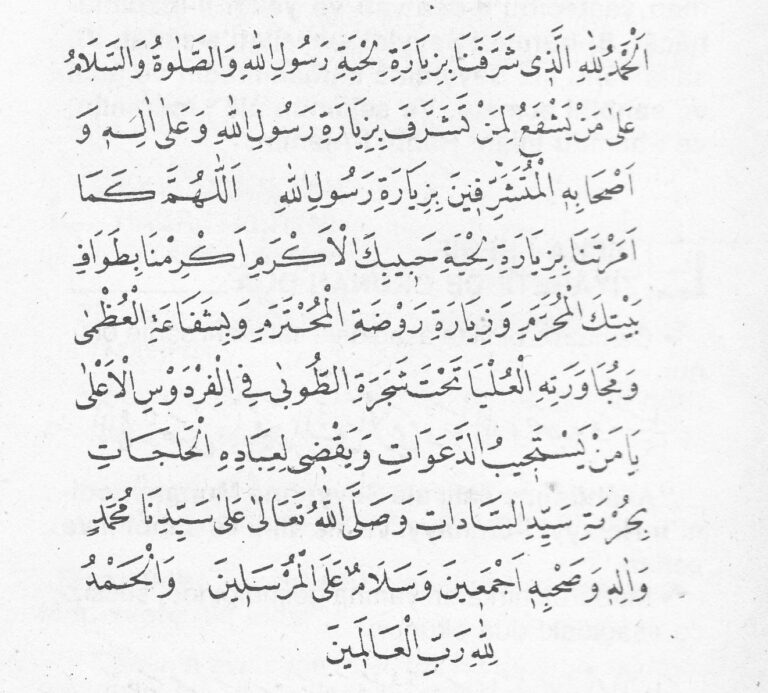 اَلْحَمْدُ لِلّٰهِ الَّذِى شَرَّفَنَا بِزِيَارَةِ لِحْيَةِ رَسُولِ اللّٰهِ وَالصَّلٰوةُ وَالسَّلَامُ
عَلٰى مَنْ يَشْفَعُ لِمَنْ تَشَرَّفَ بِزِيَارَةِ رَسُولِ اللّٰهِ وَعَلٰى اٰلِهٖ وَ
اَصْحَابِهِ الْمُتَشَرِّفِينَ بِزِيَارَةِ رَسُولِ اللّٰهِ اَللّٰهُمَّ كَمَا
اَمَرْتَنَا بِزِيَارَةِ لِحْيَةِ حَبِيبِكَ الْاَكْرَمِ اَكْرِمْنَا بِطَوَافِ
بَيْتِكَ الْمُحَرَّمِ وَزِيَارَةِ رَوْضَةِ الْمُحْتَرَمِ وَبِشَفَاعَةِ الْعُظْمٰى
وَمُجَاوَرَتِهِ الْعُلْيَا تَحْتَ شَجَرَةِ الطُّوبٰى فِى الْفِرْدَوْسِ الْاَعْلٰى
يَا مَنْ يَسْتَجِيبُ الدَّعَوَاتِ وَيَقْضِى لِعِبَادِهِ الْحَاجَاتِ
بِحُرْمَةِ سَيِّدِ السَّادَاتِ وَصَلَّى اللّٰهُ تَعَالٰى عَلٰى سَيِّدِنَا مُحَمَّدٍ
وَاٰلِهٖ وَصَحْبِهٖ اَجْمَعِينَ وَسَلَامٌ عَلَى الْمُرْسَلِينَ وَالْحَمْدُ
لِلّٰهِ رَبِّ الْعَالَمِينَ